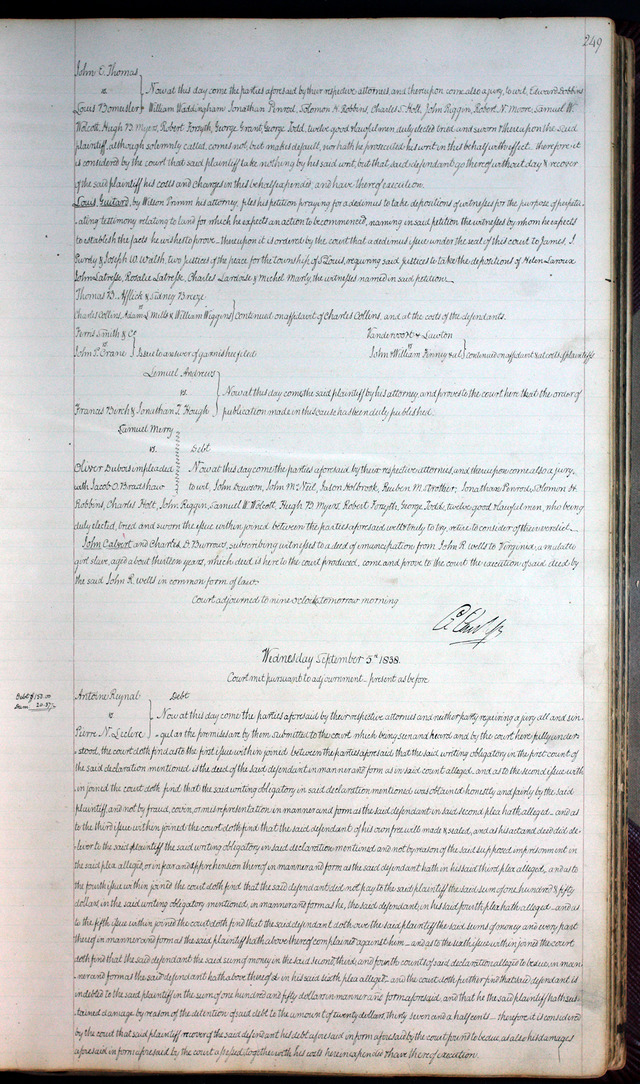 249
John E. Thomas
vs
Now at this day come the parties aforesaid by their respective attornies and thereupon come also a jury, to wit, Edward Dobbins
Louis Bomeisler & William Waddingham Jonathan Penrod, Solomon H. Robbins, Charles S. Holt, John Riggin, Robert N. Moore, Samuel W.
Wolcott, Hugh B Myers, Robert Forsyth, George Grant, George Dodd, twelve good & lawful men duly elected tried and sworn & thereupon the said
plaintiff, although solemnly called, comes not, but makes default, nor hath he prosecuted his writ in this behalf with effect. therefore it
is considered by the court that said plaintiff take nothing by his said writ, but that said defendant go thereof without day & recover
of the said plaintiff his costs and charges in this behalf expended, and have thereof execution.
Louis Guitard, by Wilson Primm his attorney, files his petition praying for a dedimus to take depositions of witnesses for the purpose of perpetu-
ating testimony relating to land for which he expects an action to be commenced, naming in said petition the witnesses by whom he expects
to establish the facts he wishes to prove. thereupon it is ordered by the court that a dedimus issue under the seal of this court to James. J.
Purdy & Joseph W. Walsh, two justices of the peace for the township of St Louis, requiring said justices to take the depositions of Helen Laroux
John Latresse, Rosalie Latresse, Charles Lardoise & Michel Marly, the witnesses named in said petition.
Thomas B. Afflick & Sudney Breeze
vs
Charles Collins, Adam L Mills & William Wiggins } Continued on affidavit of Charles Collins, and at the costs of the defendants.
Ferris Smith & Co
vs
John P. Crane } Issue to answer of garnishee filed
Vandervoort & Lawton
vs
John & William Finney & al } continued on affidavit & at costs of plaintiffs
Lemuel Andrews
vs.
Now at this day come the said plaintiff by his attorney, and proves to the court here that the order of
Francis Birch & Jonathan T. Hough } publication made in this cause has been duly published.
Samuel Merry
vs Debt
Oliver Dubois impleaded Now at this day come the parties aforesaid by their respective attornies, and thereupon come also a jury,
with Jacob O. Bradshaw to wit, John Dawson, John McNeil, Jason Holbrook, Reuben M. Strother, Jonathan Penrod, Solomon H.
Robbins, Charles Holt, John Riggin, Samuel W. Wolcott, Hugh B Myers, Robert Forsyth, George Dodd, twelve good & lawful men, who being
duly elected, tried and sworn the issue within joined between the parties aforesaid well & truly to try, retire to consider of their verdict.
John Calvert and Charles D. Burrows, subscribing witnesses to a deed of emancipation from John R. Wells to Virginia, a mulatto
girl slave, aged about thirteen years, which deed is here to the court produced, come and prove to the court the execution of said deed by
the said John R. Wells in common form of law.
Court adjourned to nine o'clock, tomorrow morning
Wednesday September 5th 1838.
Court met pursuant to adjournment - present as before
Debt $150.00
Dam 20.37½
Antoine Reynal Debt
vs
Now at this day come the parties aforesaid by their respective attornies and neither party requiring a jury all and sin-
Pierre N. Leclere } gular the premises are by them submitted to the court which being seen and heard and by the court here fully under-
stood, the court doth find as to the first issue within joined between the parties aforesaid that the said writing obligatory in the first count of
the said declaration mentioned is the deed of the said defendant in manner and form as in said count alleged, and as to the second issue with
in joined the court doth find that the said writing obligatory in said declaration mentioned was obtained honestly and fairly by the said
plaintiff, and not by fraud, covin, or misrepresentation in manner and form as the said defendant in said second plea hath alleged - and as
to the third issue within joined the court doth find that the said defendant of his own free will made & sealed, and as his act and deed did de-
liver to the said plaintiff the said writing obligatory in said declaration mentioned and not by reason of the said supposed imprisonment in
the said plea alleged, or in fear and apprehension thereof in manner and form as the said defendant hath in his said third plea alleged, and as to
the fourth issue within joined the court doth find that the said defendant did not pay to the said plaintiff the said sum of one hundred & fifty
dollars in the said writing obligatory mentioned, in manner and form as he, the said defendant, in his said fourth plea hath alleged - and as
to the fifth issue within joined the court doth find that the said defendant doth owe the said plaintiff the said sums of money and every part
thereof in manner and form as the said plaintiff hath above thereof complained against him - and as to the sixth issue within joined the court
doth find that the said defendant the said sum of money in the said second, third, and fourth counts of said declaration alleged to be due, in man-
ner and form as the said defendant hath above thereof in his said sixth plea alleged - and the court doth further find that said defendant is
indebted to the said plaintiff in the sum of one hundred and fifty dollars in manner and form aforesaid, and that he the said plaintiff hath sus-
tained damage by reason of the detention of said debt to the amount of twenty dollars, thirty seven and a half cents - therefore it is considered
by the court that said plaintiff recover of the said defendant his debt aforesaid in form aforesaid by the court found to be due, as also his damages
aforesaid in form aforesaid by the court assessed, together with his costs herein expended & have thereof execution.